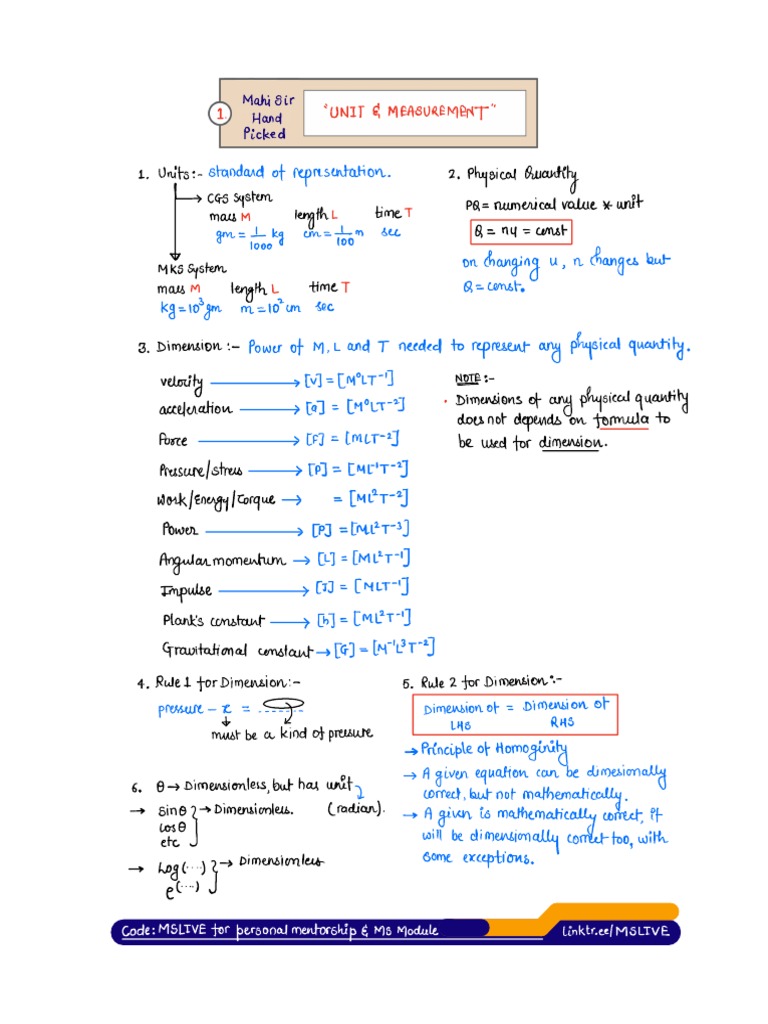 1.
Mahi Sir
Hand
Picked
"UNIT & MEASUREMENT"
1. Units:- standard of representation.
CGS System
mass M length L time T
gm = 1/1000 kg cm = 1/100 m sec
MKS System
mass M length L time T
kg = 10³ gm m = 10² cm sec
2. Physical Quantity
PQ = numerical value * unit
Q = nu = const
on changing u, n changes but
Q = const.
3. Dimension :- Power of M, L and T needed to represent any physical quantity.
velocity → [V] = [M⁰LT⁻¹]
acceleration → [a] = [M⁰LT⁻²]
Force → [F] = [MLT⁻²]
Pressure/stress → [P] = [ML⁻¹T⁻²]
Work/Energy/Torque → = [ML²T⁻²]
Power → [P] = [ML²T⁻³]
Angular momentum → [L] = [ML²T⁻¹]
Impulse → [J] = [MLT⁻¹]
Plank's constant → [h] = [ML²T⁻¹]
Gravitational constant → [G] = [M⁻¹L³T⁻²]
NOTE :-
• Dimensions of any physical quantity
does not depends on formula to
be used for dimension.
4. Rule 1 for Dimension:-
pressure – x = ........
must be a kind of pressure
5. Rule 2 for Dimension:-
Dimension of = Dimension of
LHS RHS
→ Principle of Homoginity
→ A given equation can be dimesionally
correct, but not mathematically.
→ A given is mathematically correct, it
will be dimensionally correct too, with
some exceptions.
6. θ → Dimensionless, but has unit
(radian).
→ sinθ } → Dimensionless.
cosθ
etc
→ Log(....) } → Dimensionless
e^(....)
Code: MSLIVE for personal mentorship & MS Module
linktr.ee/MSLIVE